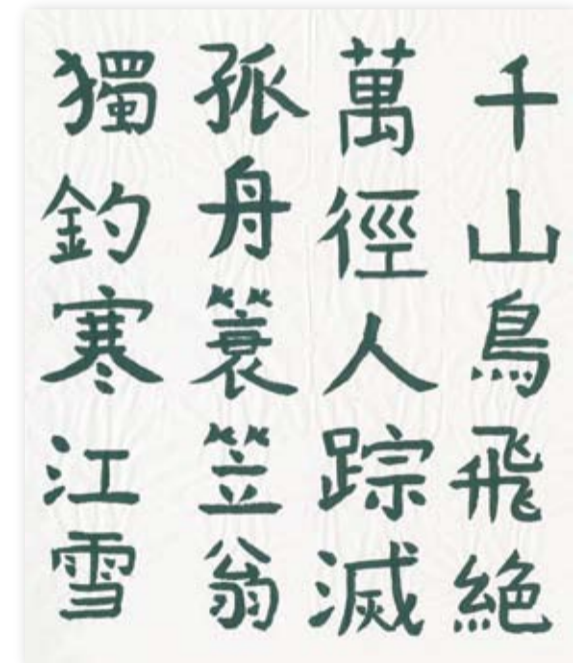 千山鳥飛絕
萬徑人踪滅
孤舟簑笠翁
獨釣寒江雪